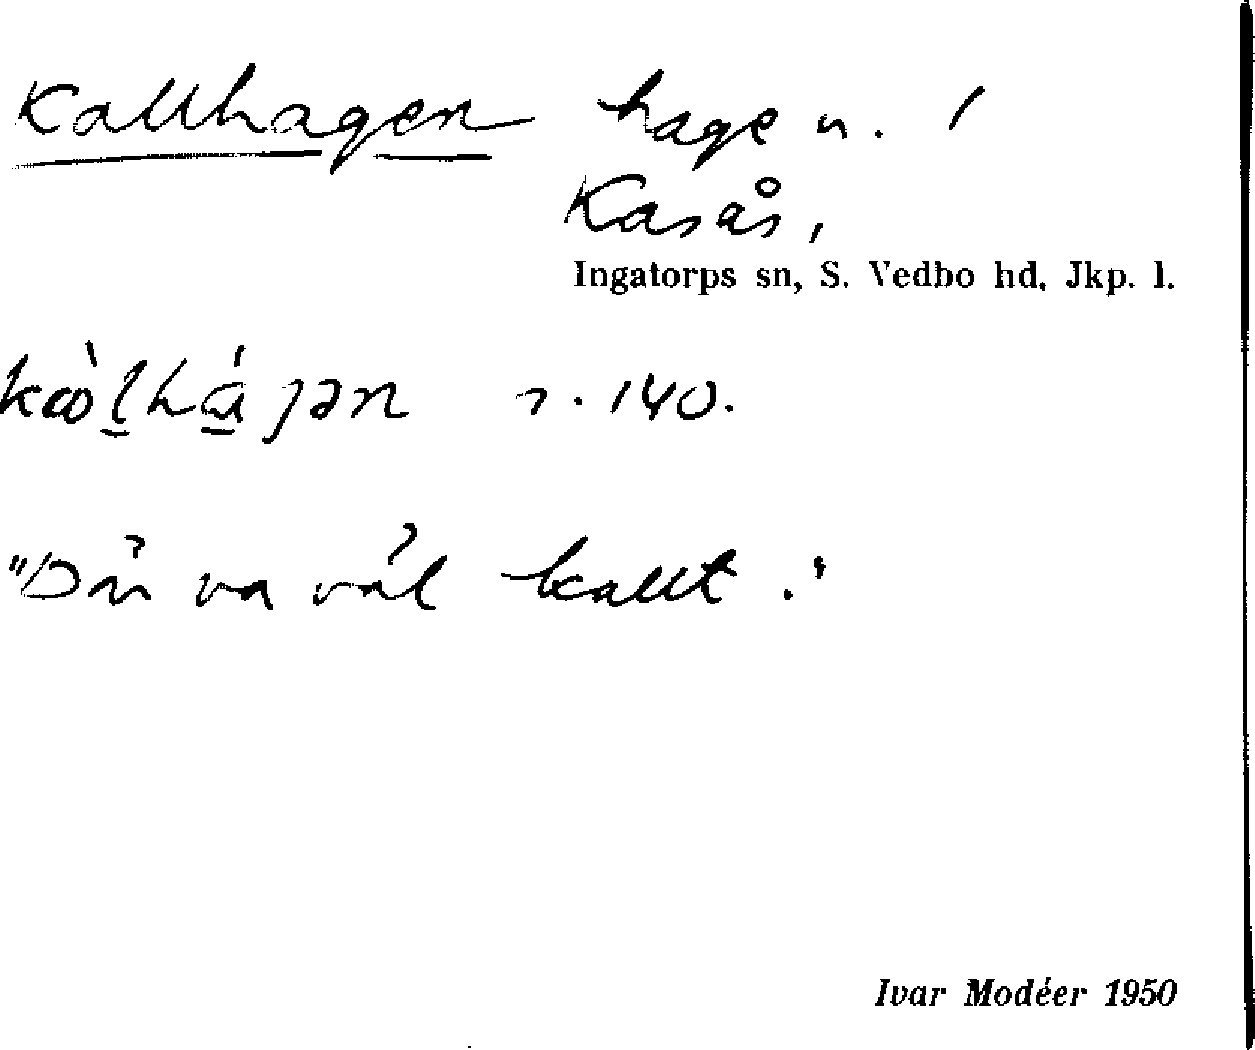 Kallhagen hage u. /
Kasås,
Ingatorps sn, S. Vedbo hd, Jkp. l.
140.
va väl kallt."
Ivar Modéer 1950